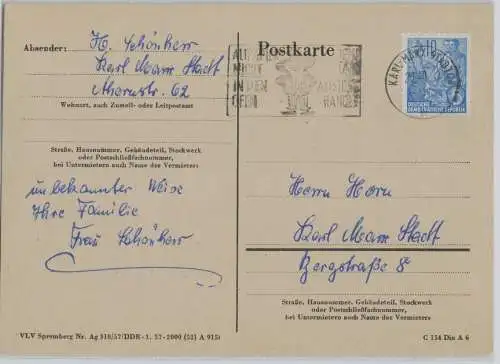 Absender: H. Schönherr
Karl Marx Stadt
Ahornstr. 62
Wohnort, auch Zustell- oder Leitpostamt
Straße, Hausnummer, Gebäudeteil, Stockwerk
oder Postschließfachnummer,
bei Untermietern auch Name des Vermieters
unbekannter Weise
Ihre Familie
Frau Schönherr
VLV Spremberg Nr. Ag 310/57/DDR - 1. 57 - 2000 (52) A 915)
Postkarte
NICHT
IN DEN
10
DEUTSCHE
DEMOKRATISCHE REPUBLIK
KARL-MARX-STADT
Herrn Horn
Karl Marx Stadt
Bergstraße 8
Straße, Hausnummer, Gebäudeteil, Stockwerk
oder Postschließfachnummer,
bei Untermietern auch Name des Vermieters
C 154 Din A 6